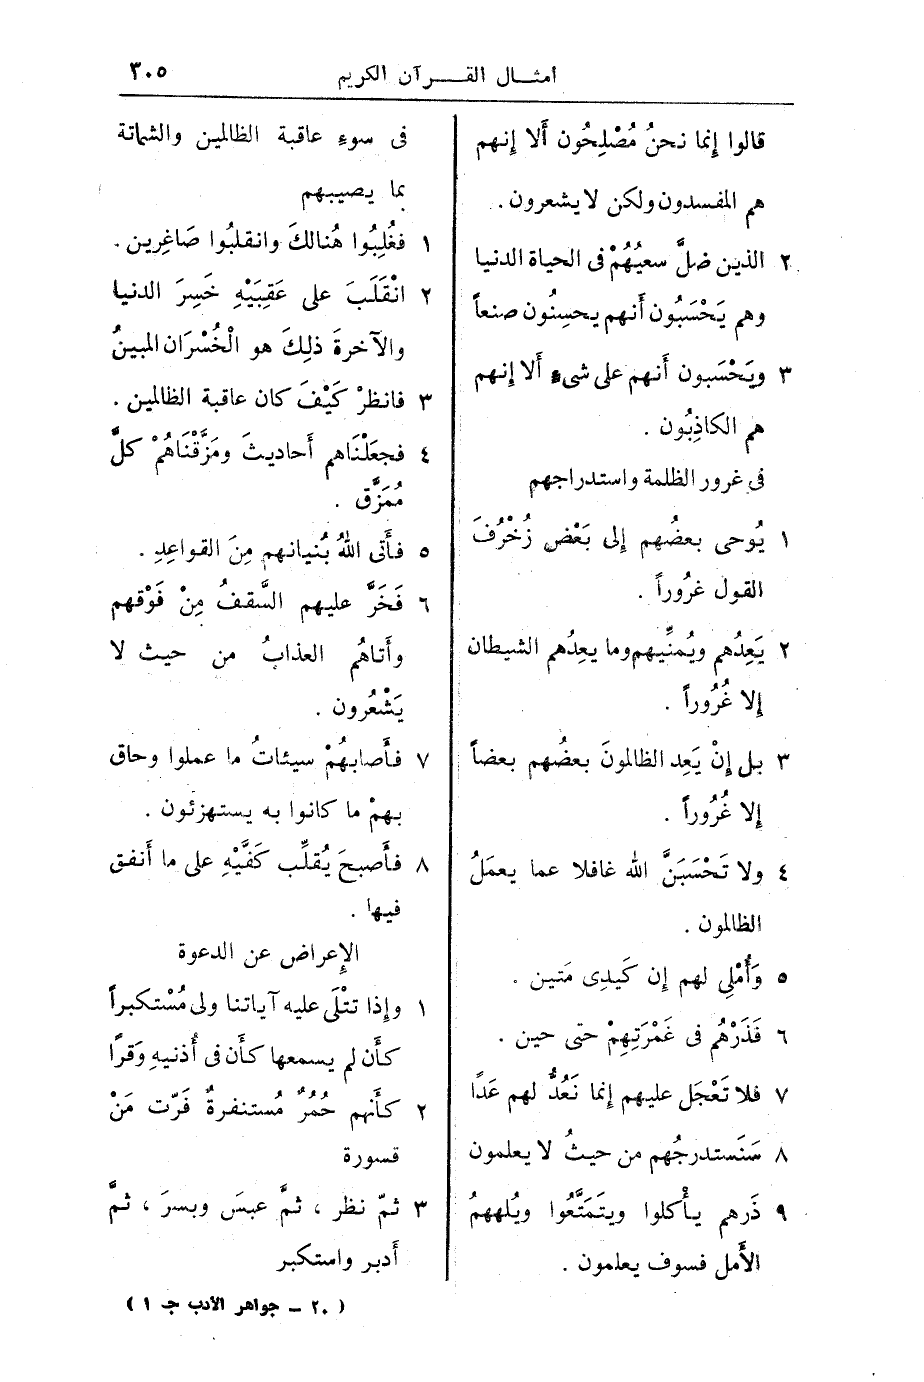 أمثال القرآن الكريم
٣٠٥
قالوا إنما نحنُ مُصْلِحُون أَلا إنهم
هم المفسدون ولكن لا يشعرون .
٢ الذين ضلَّ سعيُهُمْ فى الحياة الدنيا
وهم يَحْسَبُون أنهم يحسِنُون صنعاً
٣ ويَحْسَبون أنهم على شىء أَلا إنهم
هم الكاذِبُون .
فى غرور الظلمة واستدراجهم
١ يُوحى بعضُهم إلى بَعْضٍ زُخْرُفَ
القول غرُوراً .
٢ يَعِدُهم ويُمنِّيهم وما يعِدُهم الشيطان
إلا غُرُوراً .
٣ بل إنْ يَعِد الظالمونَ بعضُهم بعضاً
إلا غُرُوراً .
٤ ولا تَحْسَبَنَّ الله غافلا عما يعملُ
الظالمون .
٥ وَأُمْلِي لهم إن كَيدِى مَتين .
٦ فَذَرْهُم فى غَمْرَتِهِمْ حتى حين .
٧ فلا تَعْجَل عليهم إنما نَعُدُّ لهم عَدًا
٨ سَنَستدرجُهم من حيثُ لا يعلمون
٩ ذَرهم يأْكلوا ويتَمَتَّعُوا ويُلههمُ
الأَمل فسوف يعلمون .
فى سوءِ عاقبة الظالمين والشماتة
بما يصيبهم
١ فغُلِبُوا هُنالكَ وانقلبُوا صَاغِرين .
٢ انْقَلَبَ على عَقِبَيْهِ خَسِرَ الدنيا
والآخرةَ ذلِكَ هو الْخُسْرَان المبينُ
٣ فانظرْ كَيْفَ كان عاقبة الظالمين .
٤ فجعَلْنَاهم أَحاديثَ ومَزَّقْنَاهُمْ كلَّ
مُمَزَّق .
٥ فأَتى اللهُ بُنيانهم مِنَ القواعِدِ .
٦ فَخَرَّ عليهم السَّقفُ مِنْ فَوْقهم
وأَتاهُم العذابُ من حيث لا
يَشْعُرون .
٧ فأَصابهُمْ سيئاتُ ما عملوا وحاق
بهمْ ما كانوا به يستهزئون .
٨ فأَصبحَ يُقلِّب كَفَّيْهِ على ما أَنفق
فيها .
الإِعراض عن الدعوة
١ وإذا تتْلَى عليه آياتنا ولى مُسْتكبراً
كأَن لم يسمعها كأَن فى أُذنيهِ وَقرًا
٢ كأَنهم حُمُرٌ مُستنفرةٌ فَرّت مَنْ
قسورة
٣ ثمّ نظر ، ثمَّ عبسَ وبسرَ ، ثمَّ
أَدبر واستكبر
( ٢٠ – جواهر الأدب جـ ١ )